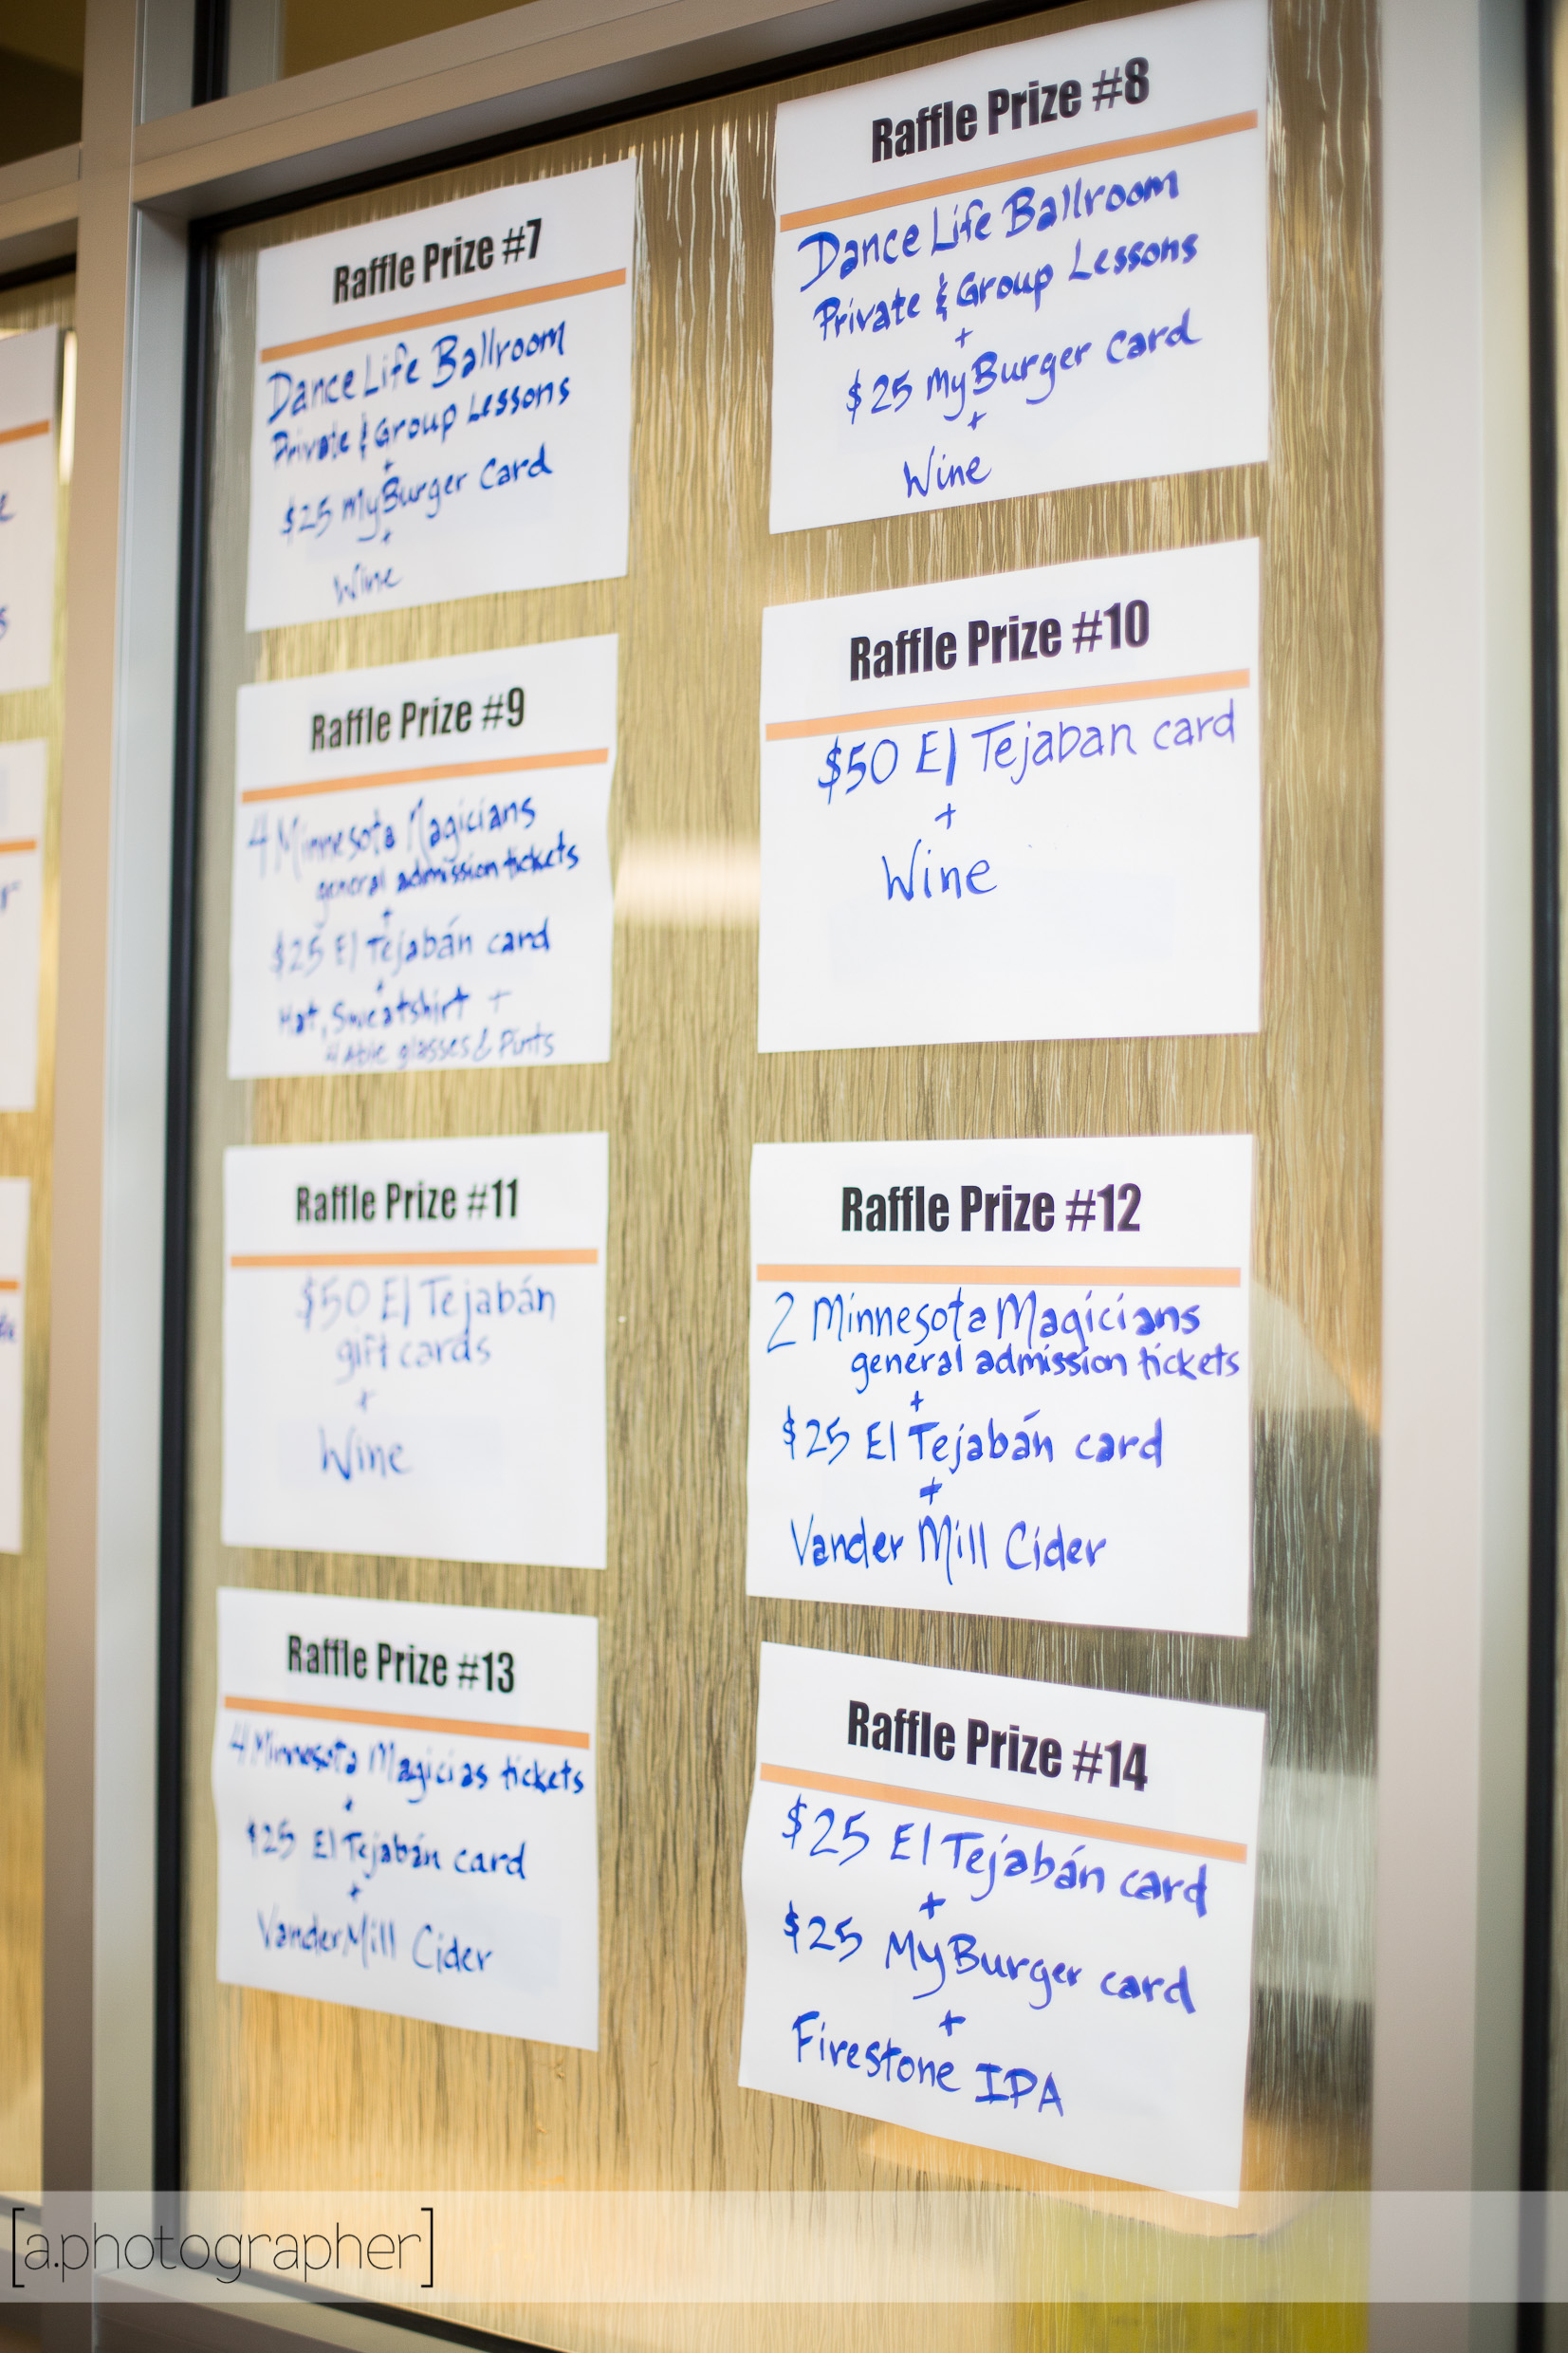 Raffle Prize #7
Dance Life Ballroom
Private & Group Lessons
+
$25 MyBurger Card
+
Wine
Raffle Prize #8
Dance Life Ballroom
Private & Group Lessons
+
$25 MyBurger Card
+
Wine
Raffle Prize #9
4 Minnesota Magicians
general admission tickets
+
$25 El Tejabán card
+
Hat, Sweatshirt +
4 Able glasses & Pints
Raffle Prize #10
$50 El Tejaban card
+
Wine
Raffle Prize #11
$50 El Tejabán
gift cards
+
Wine
Raffle Prize #12
2 Minnesota Magicians
general admission tickets
+
$25 El Tejabán card
+
Vander Mill Cider
Raffle Prize #13
4 Minnesota Magicias tickets
+
$25 El Tejabán card
+
Vander Mill Cider
Raffle Prize #14
$25 El Tejabán card
+
$25 MyBurger card
+
Firestone IPA
[a.photographer]